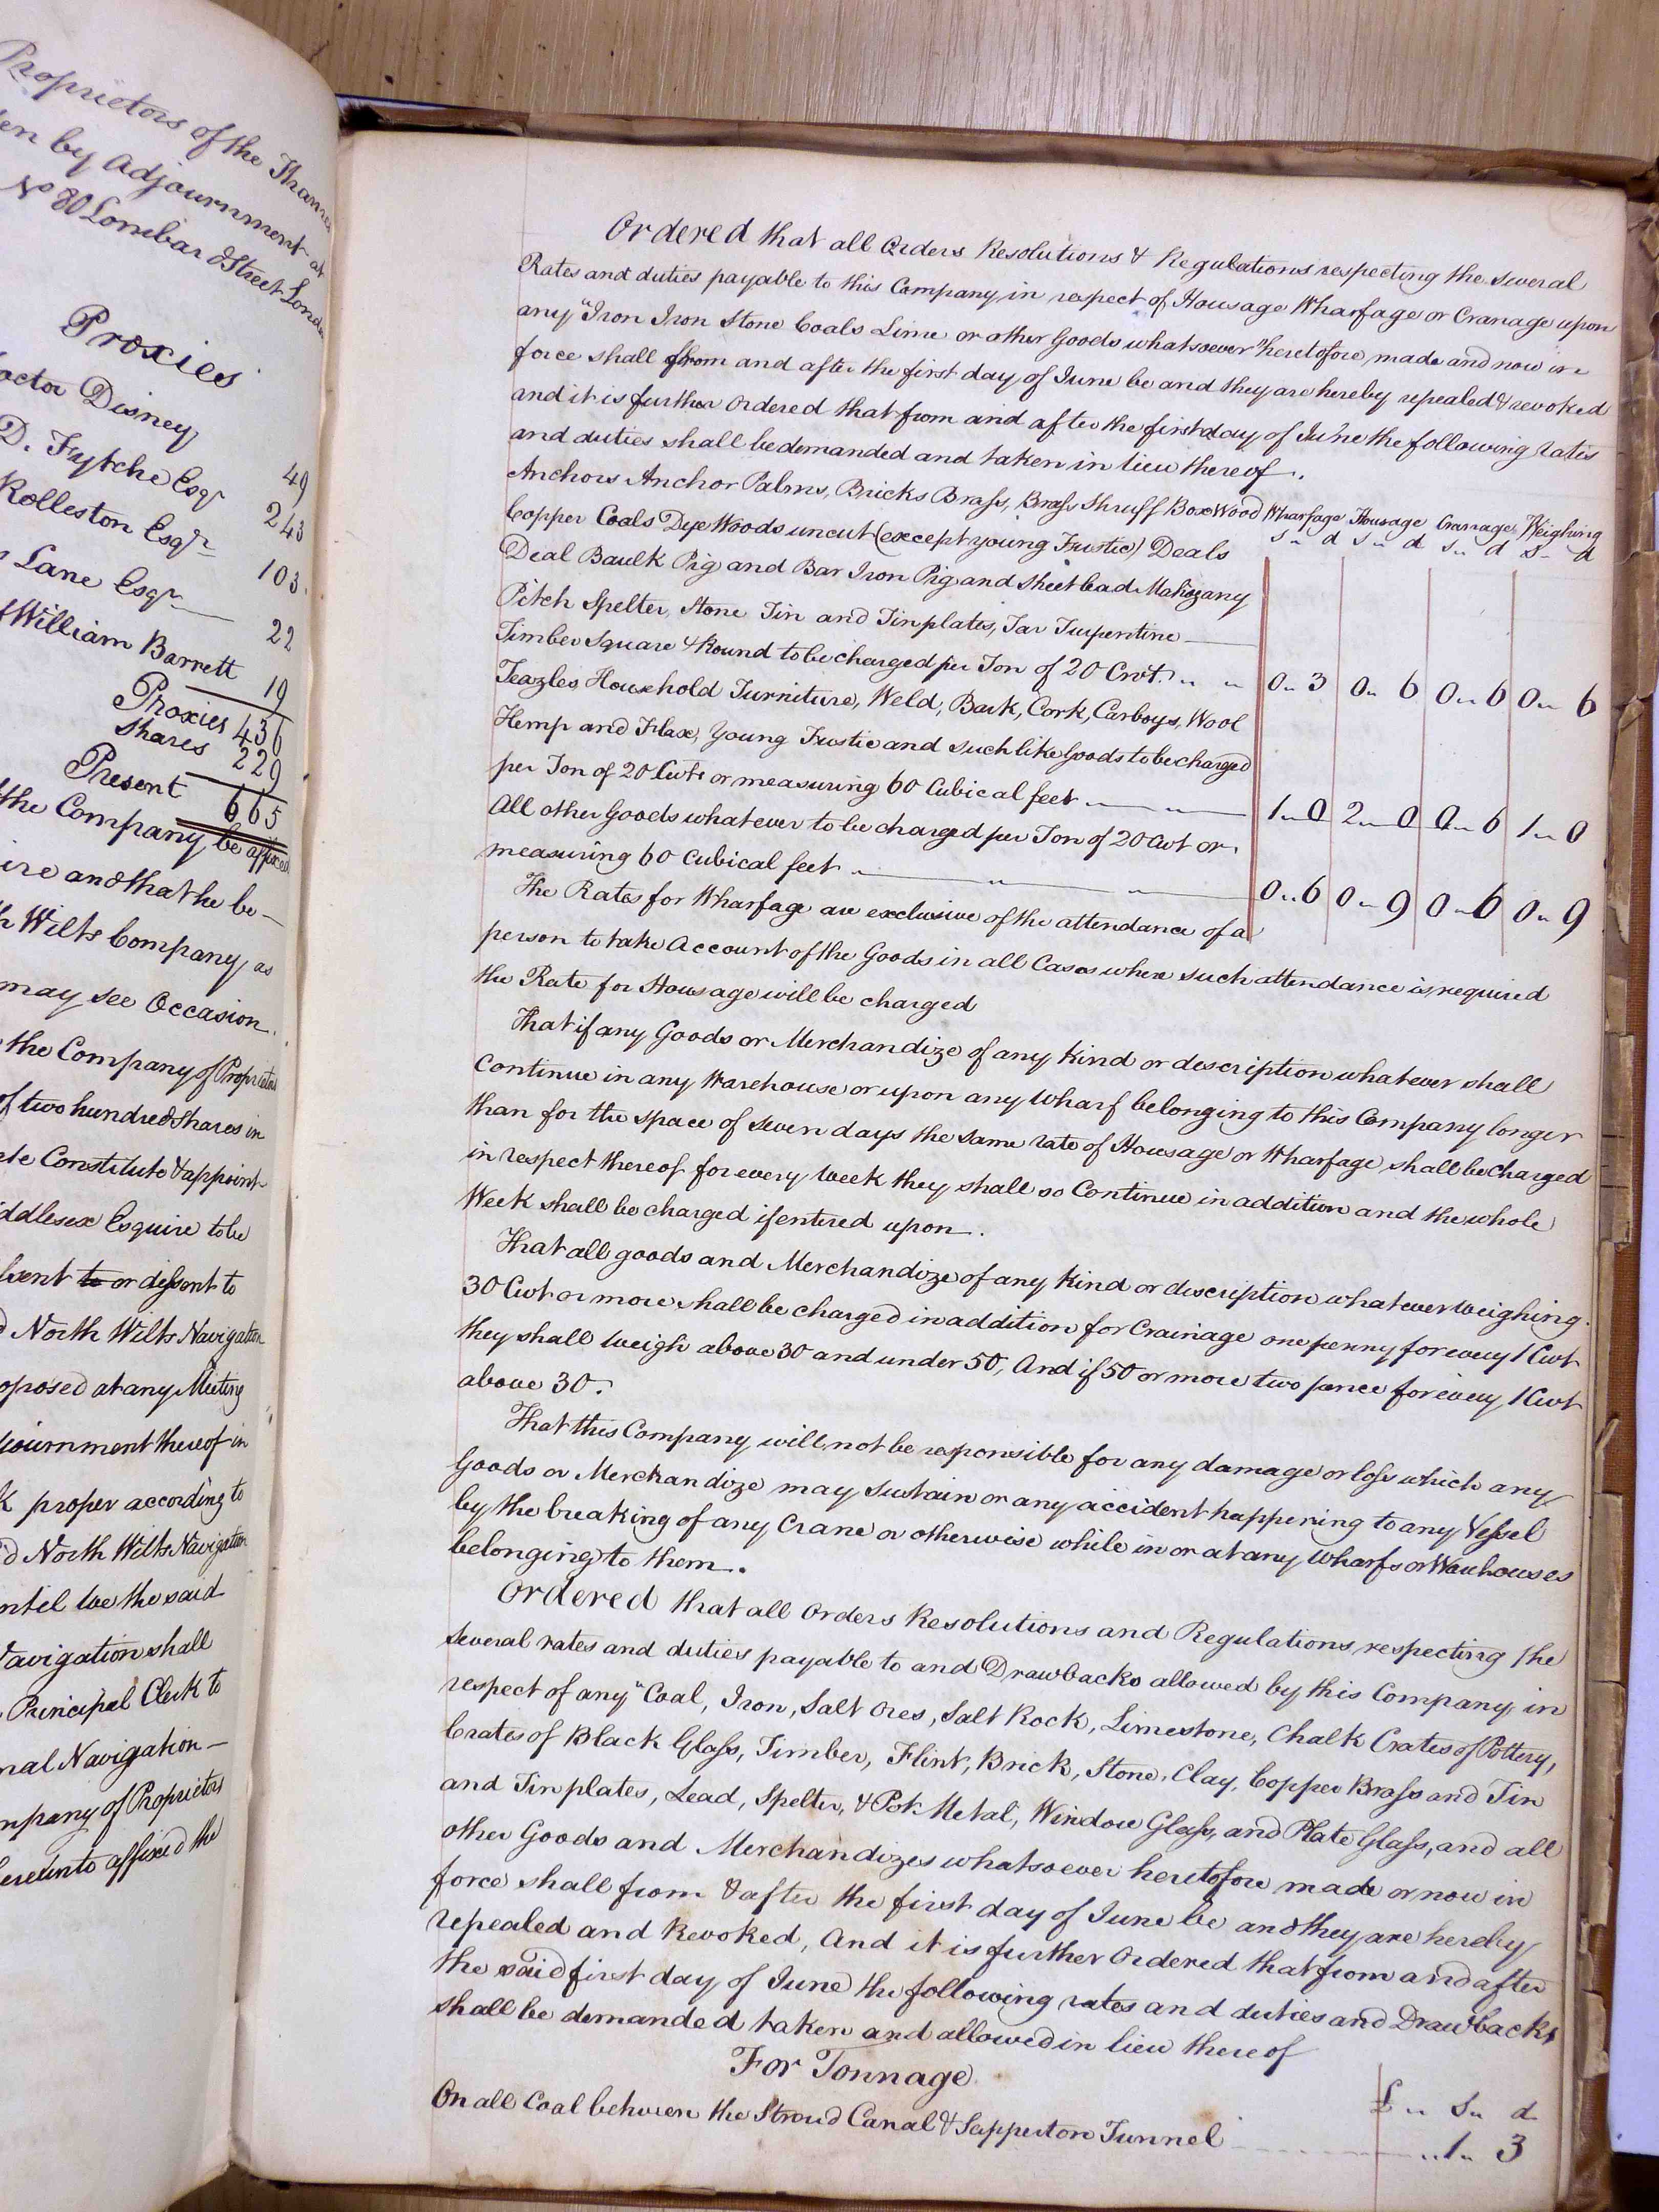 Proprietors of the Thames
by Adjournment at
No 80 Lombard Street London
Proxies
Doctor Disney 49
D. Fytche Esqr 243
Rolleston Esqr 103
Lane Esqr 22
William Barrett 19
Proxies 436
Shares 229
Present 665
the Company be affixed
and that he be
Wilts Company, as
may see Occasion.
the Company of Proprietors
of two hundred Shares in
Constitute & appoint
Esquire to be
to or dissent to
North Wilts Navigation
at any Meeting
thereof in
proper according to
North Wilts Navigation
we the said
Navigation shall
Principal Clerk to
Navigation
of Proprietors
affixed the
Ordered that all Orders Resolutions & Regulations respecting the several
Rates and duties payable to this Company in respect of Housage Wharfage or Cranage upon
any "Iron Iron Stone Coals Lime or other Goods whatsoever" heretofore made and now in
force shall from and after the first day of June be and they are hereby repealed & revoked
and it is further Ordered that from and after the first day of June the following rates
and duties shall be demanded and taken in lieu thereof.
Wharfage Housage Cranage Weighing
s d s d s d s d
Anchors Anchor Palms, Bricks Brass, Brass Shruff Box Wood
Copper Coals Dye Woods uncut (except young Fustic) Deals
Deal Baulk Pig and Bar Iron Pig and Sheet lead Mahogany
Pitch Spelter, Stone Tin and Tinplates, Tar Turpentine
Timber Square & Round to be charged per Ton of 20 Cwt. 0 3 0 6 0 6 0 6
Teazles Household Furniture, Weld, Bark, Cork, Carboys, Wool
Hemp and Flax, Young Fustic and such like Goods to be charged
per Ton of 20 Cwts or measuring 60 Cubical feet 1 0 2 0 0 6 1 0
All other Goods whatever to be charged per Ton of 20 Cwt or
measuring 60 Cubical feet 0 6 0 9 0 6 0 9
The Rates for Wharfage are exclusive of the attendance of a
person to take Account of the Goods in all Cases where such attendance is required
the Rate for Housage will be charged
That if any Goods or Merchandize of any Kind or description whatever shall
Continue in any Warehouse or upon any Wharf belonging to this Company longer
than for the space of seven days the same rate of Housage or Wharfage shall be charged
in respect thereof for every Week they shall so Continue in addition and the whole
Week shall be charged if entered upon.
That all goods and Merchandize of any Kind or description whatever weighing
30 Cwt or more shall be charged in addition for Crainage one penny for every 1 Cwt
they shall weigh above 30 and under 50, And if 50 or more two pence for every 1 Cwt
above 30.
That this Company will not be responsible for any damage or loss which any
Goods or Merchandize may Sustain or any accident happening to any Vessel
by the breaking of any Crane or otherwise while in or at any Wharfs or Warehouses
belonging to them.
Ordered that all Orders Resolutions and Regulations respecting the
several rates and duties payable to and Drawbacks allowed by this Company in
respect of any "Coal, Iron, Salt Ores, Salt Rock, Limestone, Chalk Crates of Pottery,
Crates of Black Glass, Timber, Flint, Brick, Stone, Clay, Copper Brass and Tin
and Tinplates, Lead, Spelter, & Pot Metal, Window Glass, and Plate Glass, and all
other Goods and Merchandizes whatsoever heretofore made or now in
force shall from & after the first day of June be and they are hereby
repealed and Revoked, And it is further Ordered that from and after
the said first day of June the following rates and duties and Drawbacks
shall be demanded taken and allowed in lieu thereof
For Tonnage
£ s d
On all Coal between the Stroud Canal & Sapperton Tunnel 1 3